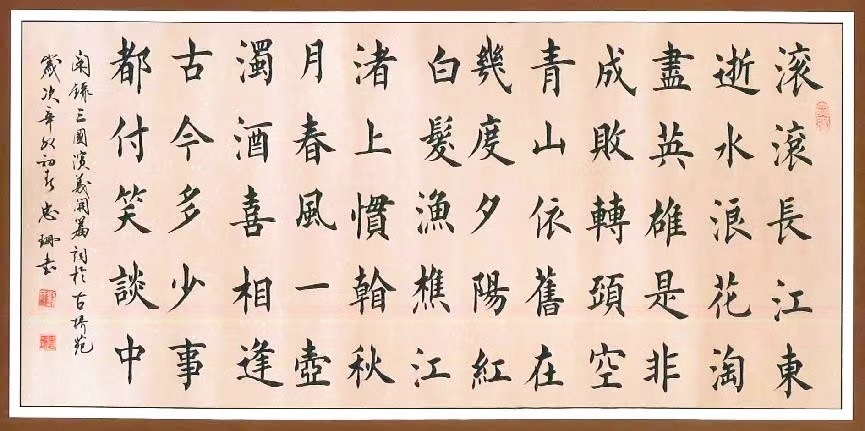 滚滚長江東
逝水浪花淘
盡英雄是非
成敗轉頭空
青山依舊在
幾度夕陽紅
白髮漁樵江
渚上慣翰秋
月春風一壺
濁酒喜相逢
古今多少事
都付笑談中
錄三國演義開篇詞於古苑
歲次辛卯初春忠珊書